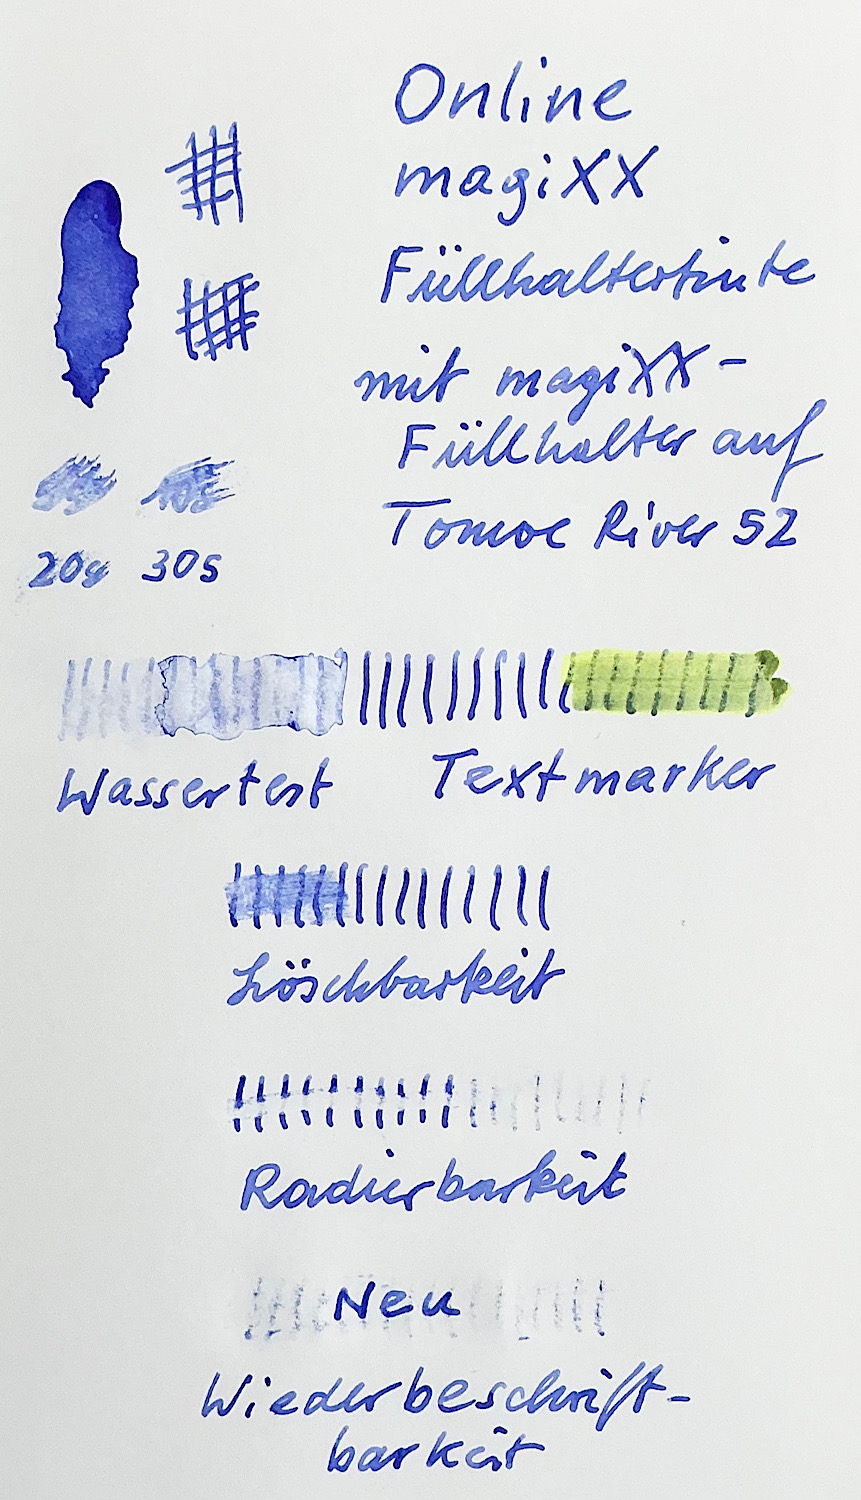 Online
magiXX
Füllhaltertinte
mit magiXX-
Füllhalter auf
Tomoe River 52
20s 30s
Wassertest Textmarker
Löschbarkeit
Radierbarkeit
Neu
Wiederbeschrift-
barkeit